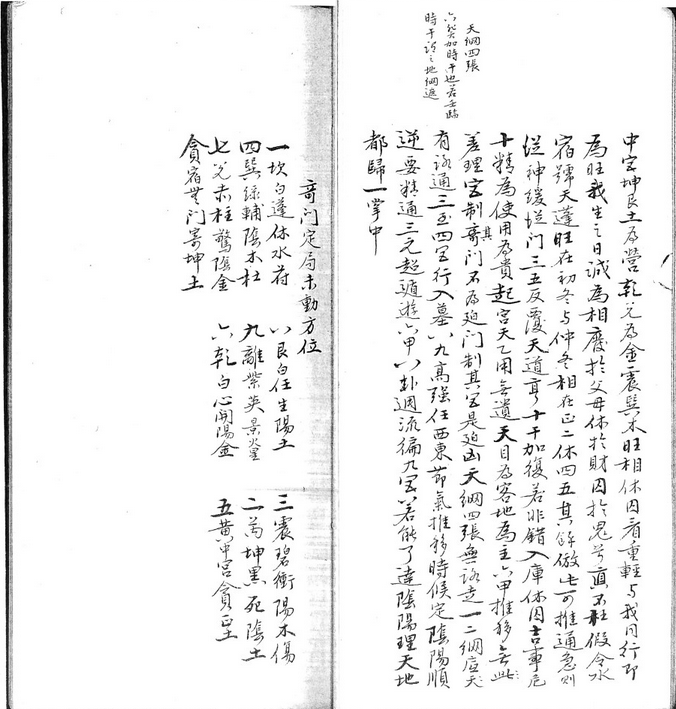 天綱四張
六癸加時干也若壬臨
時干謂之地綱遮
中宮坤艮土為營乾兌為金震巽木旺相休囚看重輕与我同行即
為旺我生之日誠為相廢於父母休於財囚於鬼兮真不枉假令水
宿號天蓬旺在初冬与仲冬相在正二休四五其餘倣此可推通急則
從神緩從门三五反覆天道亨十干加復若非錯入庫休囚吉事危
十精為使用為貴起宮天乙用無遺天目為客地為主六甲推移無此
差理宮制其奇门不為迫门制其宮是迫凶天綱四張無路走一二綱底
有路通三至四宮行入墓八九高强任西東節氣推移時候定陰陽順
逆要精通三元超遁遊六甲八卦週流徧九宮若能了達陰陽理天地
都歸一掌中
奇门定局未動方位
一坎白蓬休水符 八艮白任生陽土 三震碧衝陽木傷
四巽綠輔陰木杜 九離紫英景火星 二芮坤黑死陰土
七兌赤柱驚陰金 六乾白心開陽金 五黃中宮貪
貪宿無门寄坤土